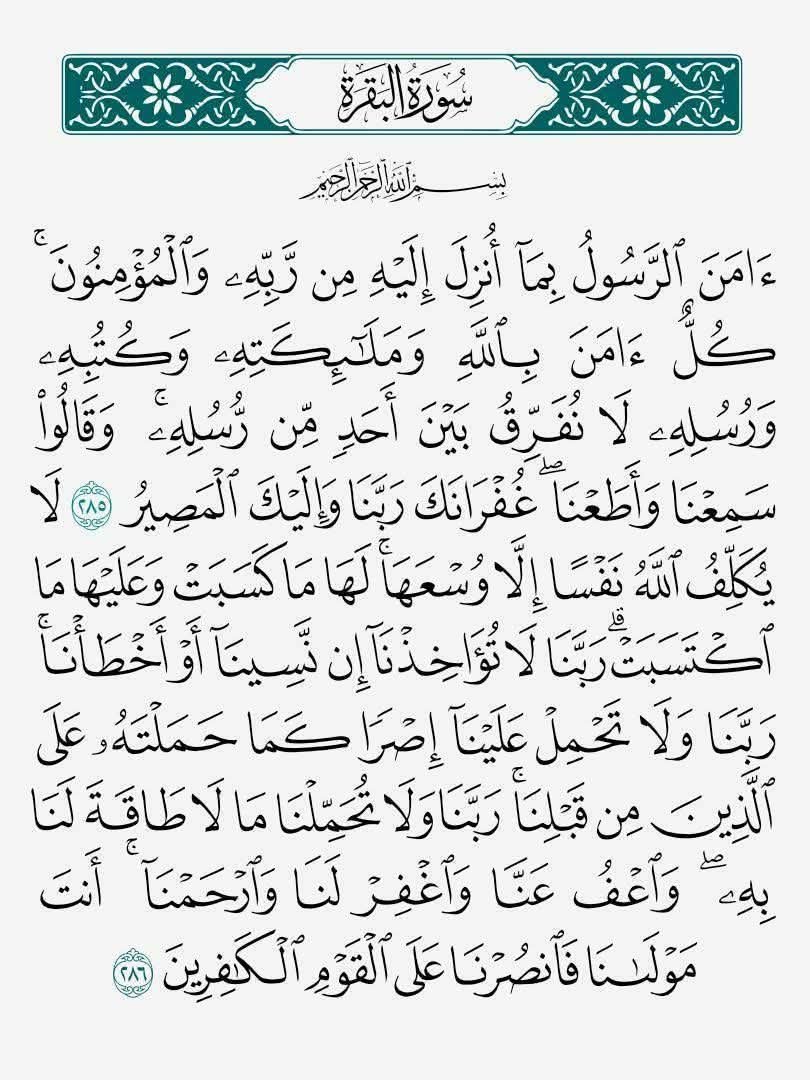 سُورَةُ البَقَرَةِ
بِسْمِ اللَّهِ الرَّحْمَٰنِ الرَّحِيمِ
ءَامَنَ ٱلرَّسُولُ بِمَآ أُنزِلَ إِلَيْهِ مِن رَّبِّهِۦ وَٱلْمُؤْمِنُونَ ۚ
كُلٌّ ءَامَنَ بِٱللَّهِ وَمَلَٰٓئِكَتِهِۦ وَكُتُبِهِۦ
وَرُسُلِهِۦ لَا نُفَرِّقُ بَيْنَ أَحَدٍ مِّن رُّسُلِهِۦ ۚ وَقَالُوا۟
سَمِعْنَا وَأَطَعْنَا ۖ غُفْرَانَكَ رَبَّنَا وَإِلَيْكَ ٱلْمَصِيرُ ٢٨٥ لَا
يُكَلِّفُ ٱللَّهُ نَفْسًا إِلَّا وُسْعَهَا ۚ لَهَا مَا كَسَبَتْ وَعَلَيْهَا مَا
ٱكْتَسَبَتْ ۗ رَبَّنَا لَا تُؤَاخِذْنَآ إِن نَّسِينَآ أَوْ أَخْطَأْنَا ۚ
رَبَّنَا وَلَا تَحْمِلْ عَلَيْنَآ إِصْرًا كَمَا حَمَلْتَهُۥ عَلَى
ٱلَّذِينَ مِن قَبْلِنَا ۚ رَبَّنَا وَلَا تُحَمِّلْنَا مَا لَا طَاقَةَ لَنَا
بِهِۦ ۖ وَٱعْفُ عَنَّا وَٱغْفِرْ لَنَا وَٱرْحَمْنَآ ۚ أَنتَ
مَوْلَىٰنَا فَٱنصُرْنَا عَلَى ٱلْقَوْمِ ٱلْكَٰفِرِينَ ٢٨٦